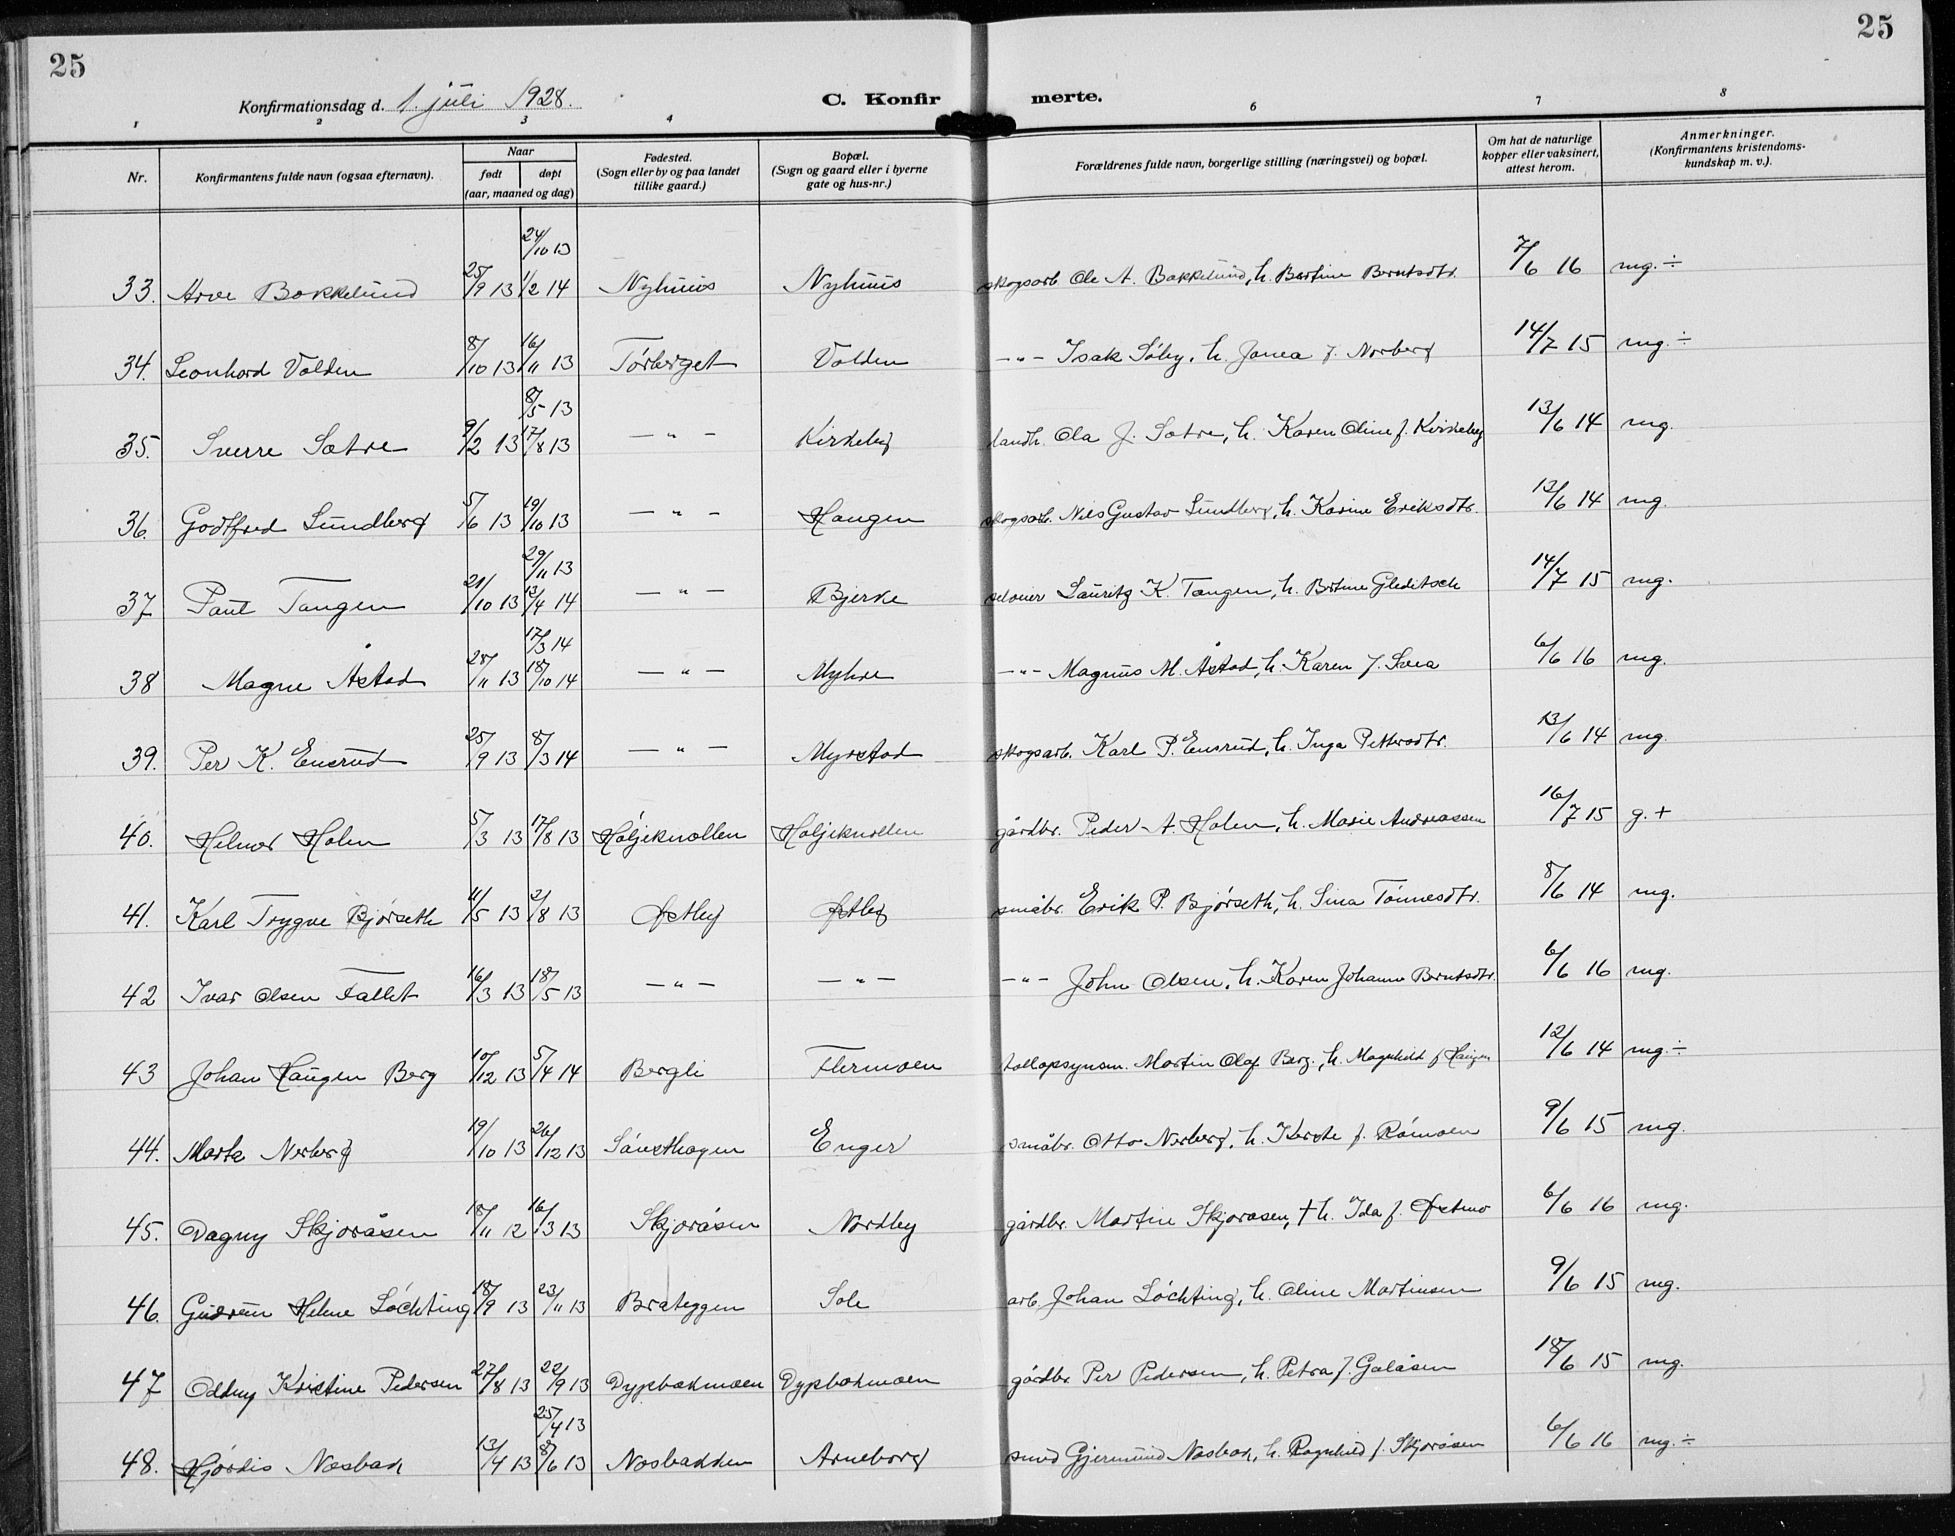 25
25
Konfirmationsdag d. 1. juli 1928.
C. Konfirmerte.
1 2 3 4 6 7 8
Nr. Konfirmantens fulde navn (ogsaa efternavn). Naar født døpt (aar, maaned og dag) Fødested. (Sogn eller by og paa landet tillike gaard.) Bopæl. (Sogn og gaard eller i byerne gate og hus-nr.) Forældrenes fulde navn, borgerlige stilling (næringsvei) og bopæl. Om hat de naturlige kopper eller vaksinert, attest herom. Anmerkninger. (Konfirmantens kristendomskundskap m. v.).
24/10 13
33. Arve Bakkelund 25/9 13 1/2 14 Nyhuus Nyhuus skogsarb. Ole A. Bakkelund, h. Bertine Berntsdtr. 7/6 16 mg. ÷
34. Leonhard Volden 8/10 13 16/11 13 Törberget Volden —"— Isak Söby, h. Janea f. Norberg 14/7 15 mg. ÷
8/5 13
35. Sverre Sætre 9/2 13 17/8 13 —"— Kirkeby landh. Ola J. Sætre, h. Karen Oline f. Kirkeby 13/6 14 mg.
36. Godtfred Sundberg 5/6 13 19/10 13 —"— Haugen skogsarb. Nils Gustav Sundberg, h. Karine Eriksdtr. 13/6 14 mg.
29/11 13
37 Paul Tangen 21/10 13 13/4 14 —"— Bjerke selveier Lauritz K. Tangen, h. Betine Gleditsch 14/7 15 mg.
17/3 14
38 Magne Åstad 28/11 13 18/10 14 —"— Myhre —"— Magnus M. Åstad, h. Karen f. Svea 6/6 16 mg.
39. Per K. Ensrud 25/9 13 8/3 14 —"— Myrstad skogsarb. Karl P. Ensrud, h. Inga Pettersdtr. 13/6 14 mg.
40. Helmer Holen 5/3 13 17/8 13 Höljeknollen Höljeknollen gårdbr. Peder A. Holen, h. Marie Andreassen 16/7 15 g. +
41. Karl Trygve Bjørseth 11/5 13 3/8 13 Østby Østby småbr. Erik P. Bjørseth, h. Sina Tönnesdtr. 8/6 14 mg.
42 Ivar Olsen Fallet 16/3 13 18/5 13 —"— —"— —"— John Olsen, h. Karen Johanne Berntsdtr. 6/6 16 mg.
43 Johan Haugen Berg 10/12 13 5/4 14 Bergli Flermoen tollopsynsm. Martin Olaf Berg, h. Magnhild f. Haugen 12/6 14 mg. ÷
44. Marta Nerberg 19/10 13 26/12 13 Sänsthagen Enger småbr. Otto Nerberg, h. Kerste f. Römoen 9/6 15 mg.
45. Dagny Skjoråsen 18/11 12 16/3 13 Skjoråsen Nordby gårdbr. Martin Skjoråsen, † h. Ida f. Østmo 6/6 16 mg.
46. Gudrun Helene Löchting 18/9 13 23/11 13 Brateggen Sole arb. Johan Löchting, h. Oline Martinsen 9/6 15 mg.
47 Oddny Kristine Pedersen 27/8 13 22/9 13 Dypbakmoen Dypbakmoen gårdbr. Per Pedersen, h. Petra f. Galåsen 18/6 15 mg.
25/4 13
48. Hjördis Næsbak 13/4 13 8/6 13 Næsbakken Arneberg smed Gjermund Næsbak, h. Ragnhild f. Skjoråsen 6/6 16 mg. ÷